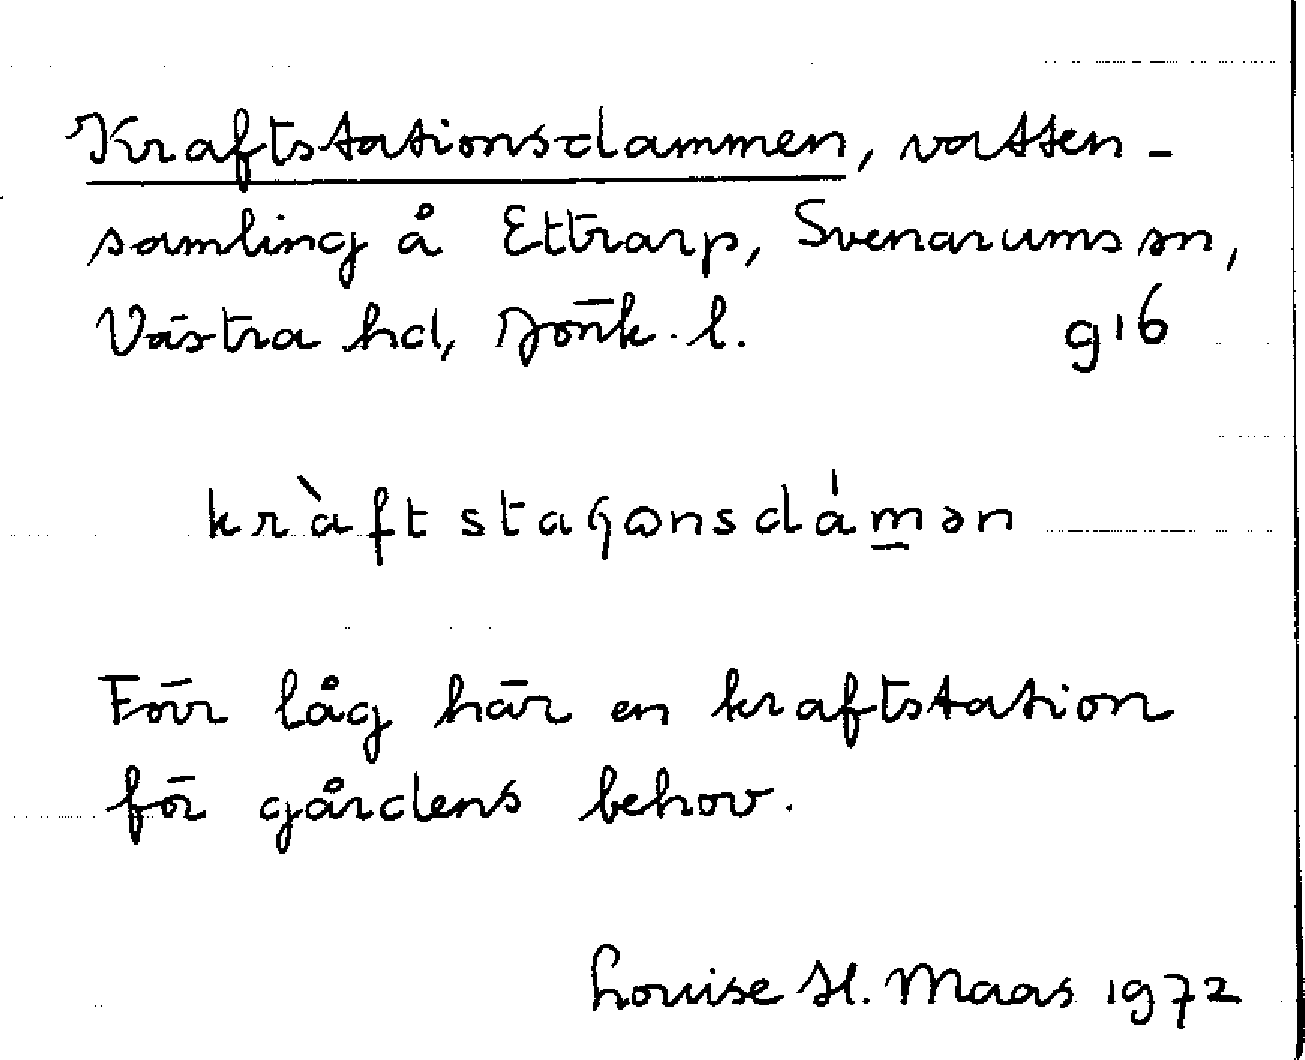 Kraftstationsdammen, vatten-
samling å Ettrarp, Svenarums sn,
Västra hd, Jönk. l. g16
kràftstaɕɷnsdámən
Förr låg här en kraftstation
för gårdens behov.
Louise H. Maas 1972